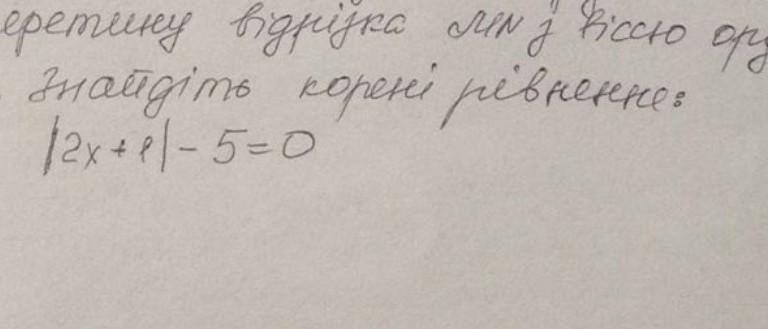 еретину відрізка MN з віссю орд
Знайдіть корені рівнення:
|2x+1|-5=0